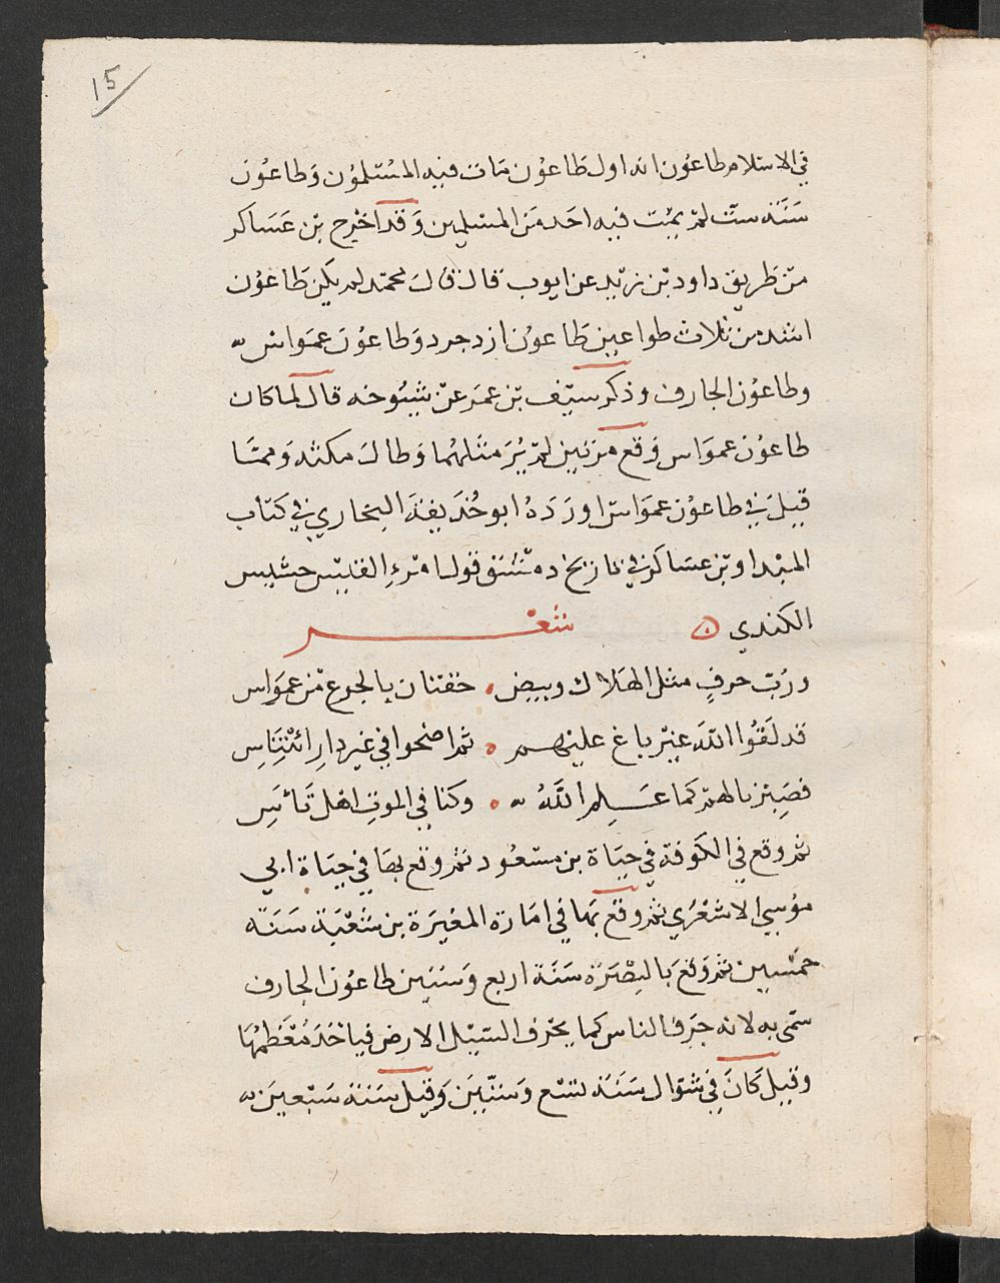 15
في الاسلام طاعون انه اول طاعون مات فيه المسلمون وَطاعون
سَنَة ستّ لمْ يمُت فيه احَد مَن المسلمين وَقد اخرج بْن عَسَاكر
منْ طَريق داود بْن زيْد عن ايوب قال قال محمّد لم يكن طَاعون
اشد من ثلاث طواعين طَاعون ازدجرد وَطاعون عموَاس
وطاعون الجارف وذكر سيْف بْن عمَر عنْ شيُوخه قال لما كان
طاعون عموَاس وَقع مرَتين لمْ يُرَ مثلهُما وَطال مكثه وَممّا
قيلَ في طاعون عموَاس اورَدهُ ابو حُذَيفَة البخاري في كتاب
المبْدا وبْن عسَاكر في تاريخ دمشق قول امرءِ القيْس حشيس
الكندي ه شعْر
ورُبّ حرفٍ مثل الهَلاك وبيض ، خفتان بالجوع منْ عموَاس
قد لَقُوا اللهَ غيْر باغ عليْهم ه ثم اضحوا في غير دارِ ائْتِنَاسِ
فصَبرنا لهمْ كما عَلِم اللَّهُ ه وكنا في الموتِ اهْل تَاسِّ
ثم وقع في الكوفة في حيَاة بن مسْعُود ثم وقع بهَا في حيَاة ابي
موُسي الاشعَري ثم وقعَ بهَا في امَارة المغيرَة بن شعْبَة سَنَة
خمْسين ثم وَقعَ بَالبصْرَة سَنَة اربع وَستين طاعون الجارف
سمّى به لانه جرَف الناس كما يجْرف السّيْل الارض فيَاخذ مُعْظمهَا
وقيل كَانَ في شوّال سَنَة تسْع وَستّين وَقيل سَنة سَبْعينَ